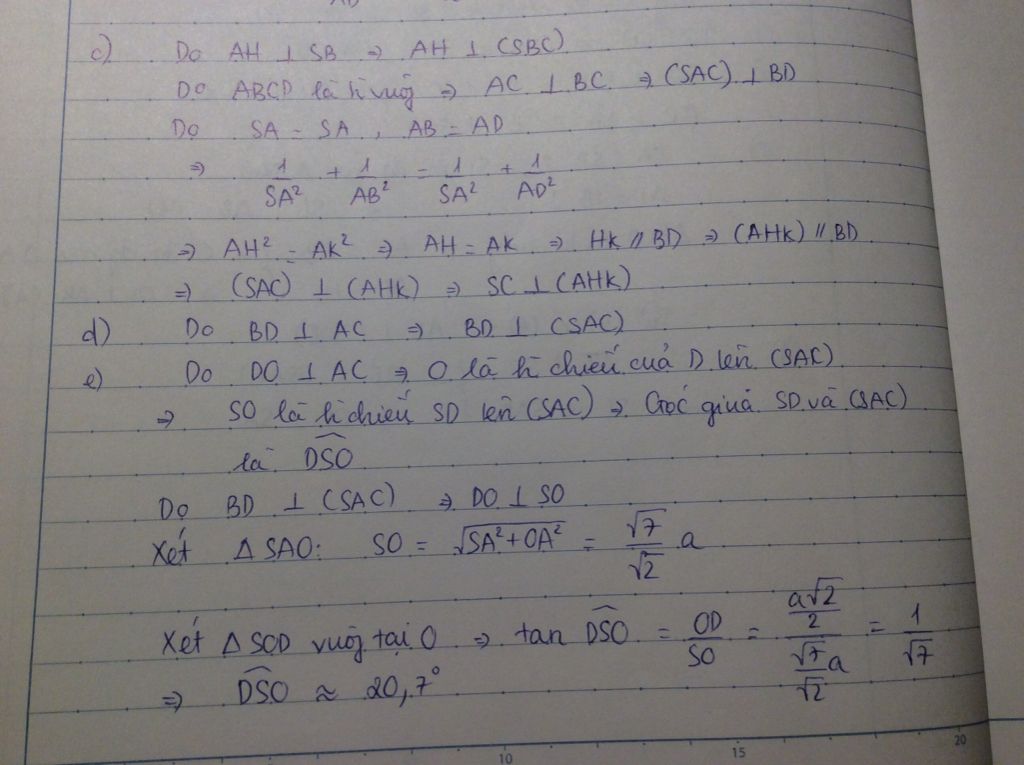 c) Do AH ⊥ SB ⇒ AH ⊥ (SBC)
Do ABCD là h vuông ⇒ AC ⊥ BC ⇒ (SAC) ⊥ BD
Do SA = SA , AB = AD
⇒ 1/SA² + 1/AB² = 1/SA² + 1/AD²
⇒ AH² = AK² ⇒ AH = AK ⇒ HK // BD ⇒ (AHK) // BD
⇒ (SAC) ⊥ (AHK) ⇒ SC ⊥ (AHK)
d) Do BD ⊥ AC ⇒ BD ⊥ (SAC)
e) Do DO ⊥ AC ⇒ O là h chiếu của D lên (SAC)
⇒ SO là h chiếu SD lên (SAC) ⇒ Góc giữa SD và (SAC)
là DSO
Do BD ⊥ (SAC) ⇒ DO ⊥ SO
Xét Δ SAO: SO = √(SA²+OA²) = √7/√2 a
Xét Δ SOD vuông tại O ⇒ tan DSO = OD/SO = (a√2/2)/(√7/√2 a) = 1/√7
⇒ DSO ≈ 20,7°
10 15 20